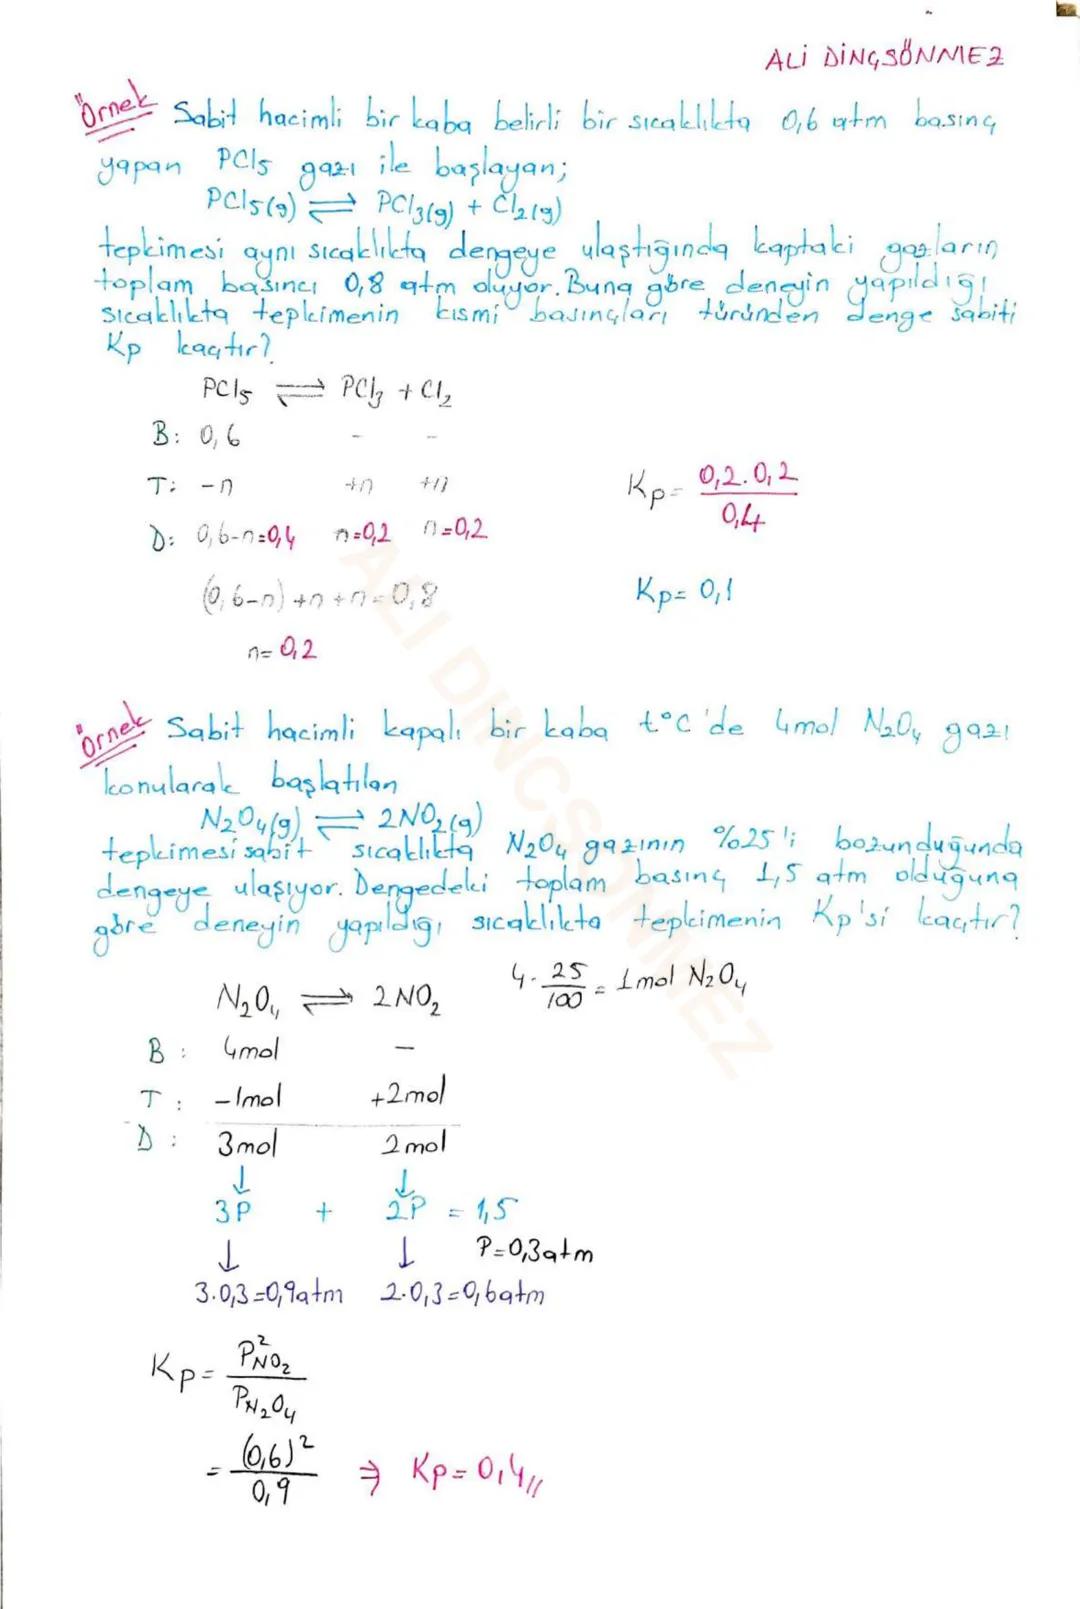 ALİ DİNÇSÖNMEZ
Örnek Sabit hacimli bir kaba belirli bir sıcaklıkta 0,6 atm basınç
yapan PCl5 gazı ile başlayan;
PCl5(g) ⇌ PCl3(g) + Cl2(g)
tepkimesi aynı sıcaklıkta dengeye ulaştığında kaptaki gazların
toplam basıncı 0,8 atm oluyor. Buna göre deneyin yapıldığı
sıcaklıkta tepkimenin kısmi basınçları türünden denge sabiti
Kp kaçtır?
PCl5 ⇌ PCl3 + Cl2
B: 0,6 - -
T: -n +n +n
D: 0,6-n=0,4 n=0,2 n=0,2
(0,6-n)+n+n=0,8
n=0,2
Kp= 0,2.0,2
0,4
Kp= 0,1
Örnek Sabit hacimli kapalı bir kaba t°C'de 4mol N2O4 gazı
konularak başlatılan
N2O4(g) ⇌ 2NO2(g)
tepkimesi sabit sıcaklıkta N2O4 gazının %25'i bozunduğunda
dengeye ulaşıyor. Dengedeki toplam basınç 1,5 atm olduğuna
göre deneyin yapıldığı sıcaklıkta tepkimenin Kp'si kaçtır?
N2O4 ⇌ 2NO2
4. 25/100 = 1mol N2O4
B: 4mol -
T: -1mol +2mol
D: 3mol 2mol
↓ ↓
3P + 2P = 1,5
↓ ↓ P=0,3atm
3.0,3=0,9atm 2.0,3=0,6atm
Kp= P²NO2
PN2O4
= (0,6)²
0,9
⇒ Kp=0,4//
ALİ DİNÇSÖNMEZ